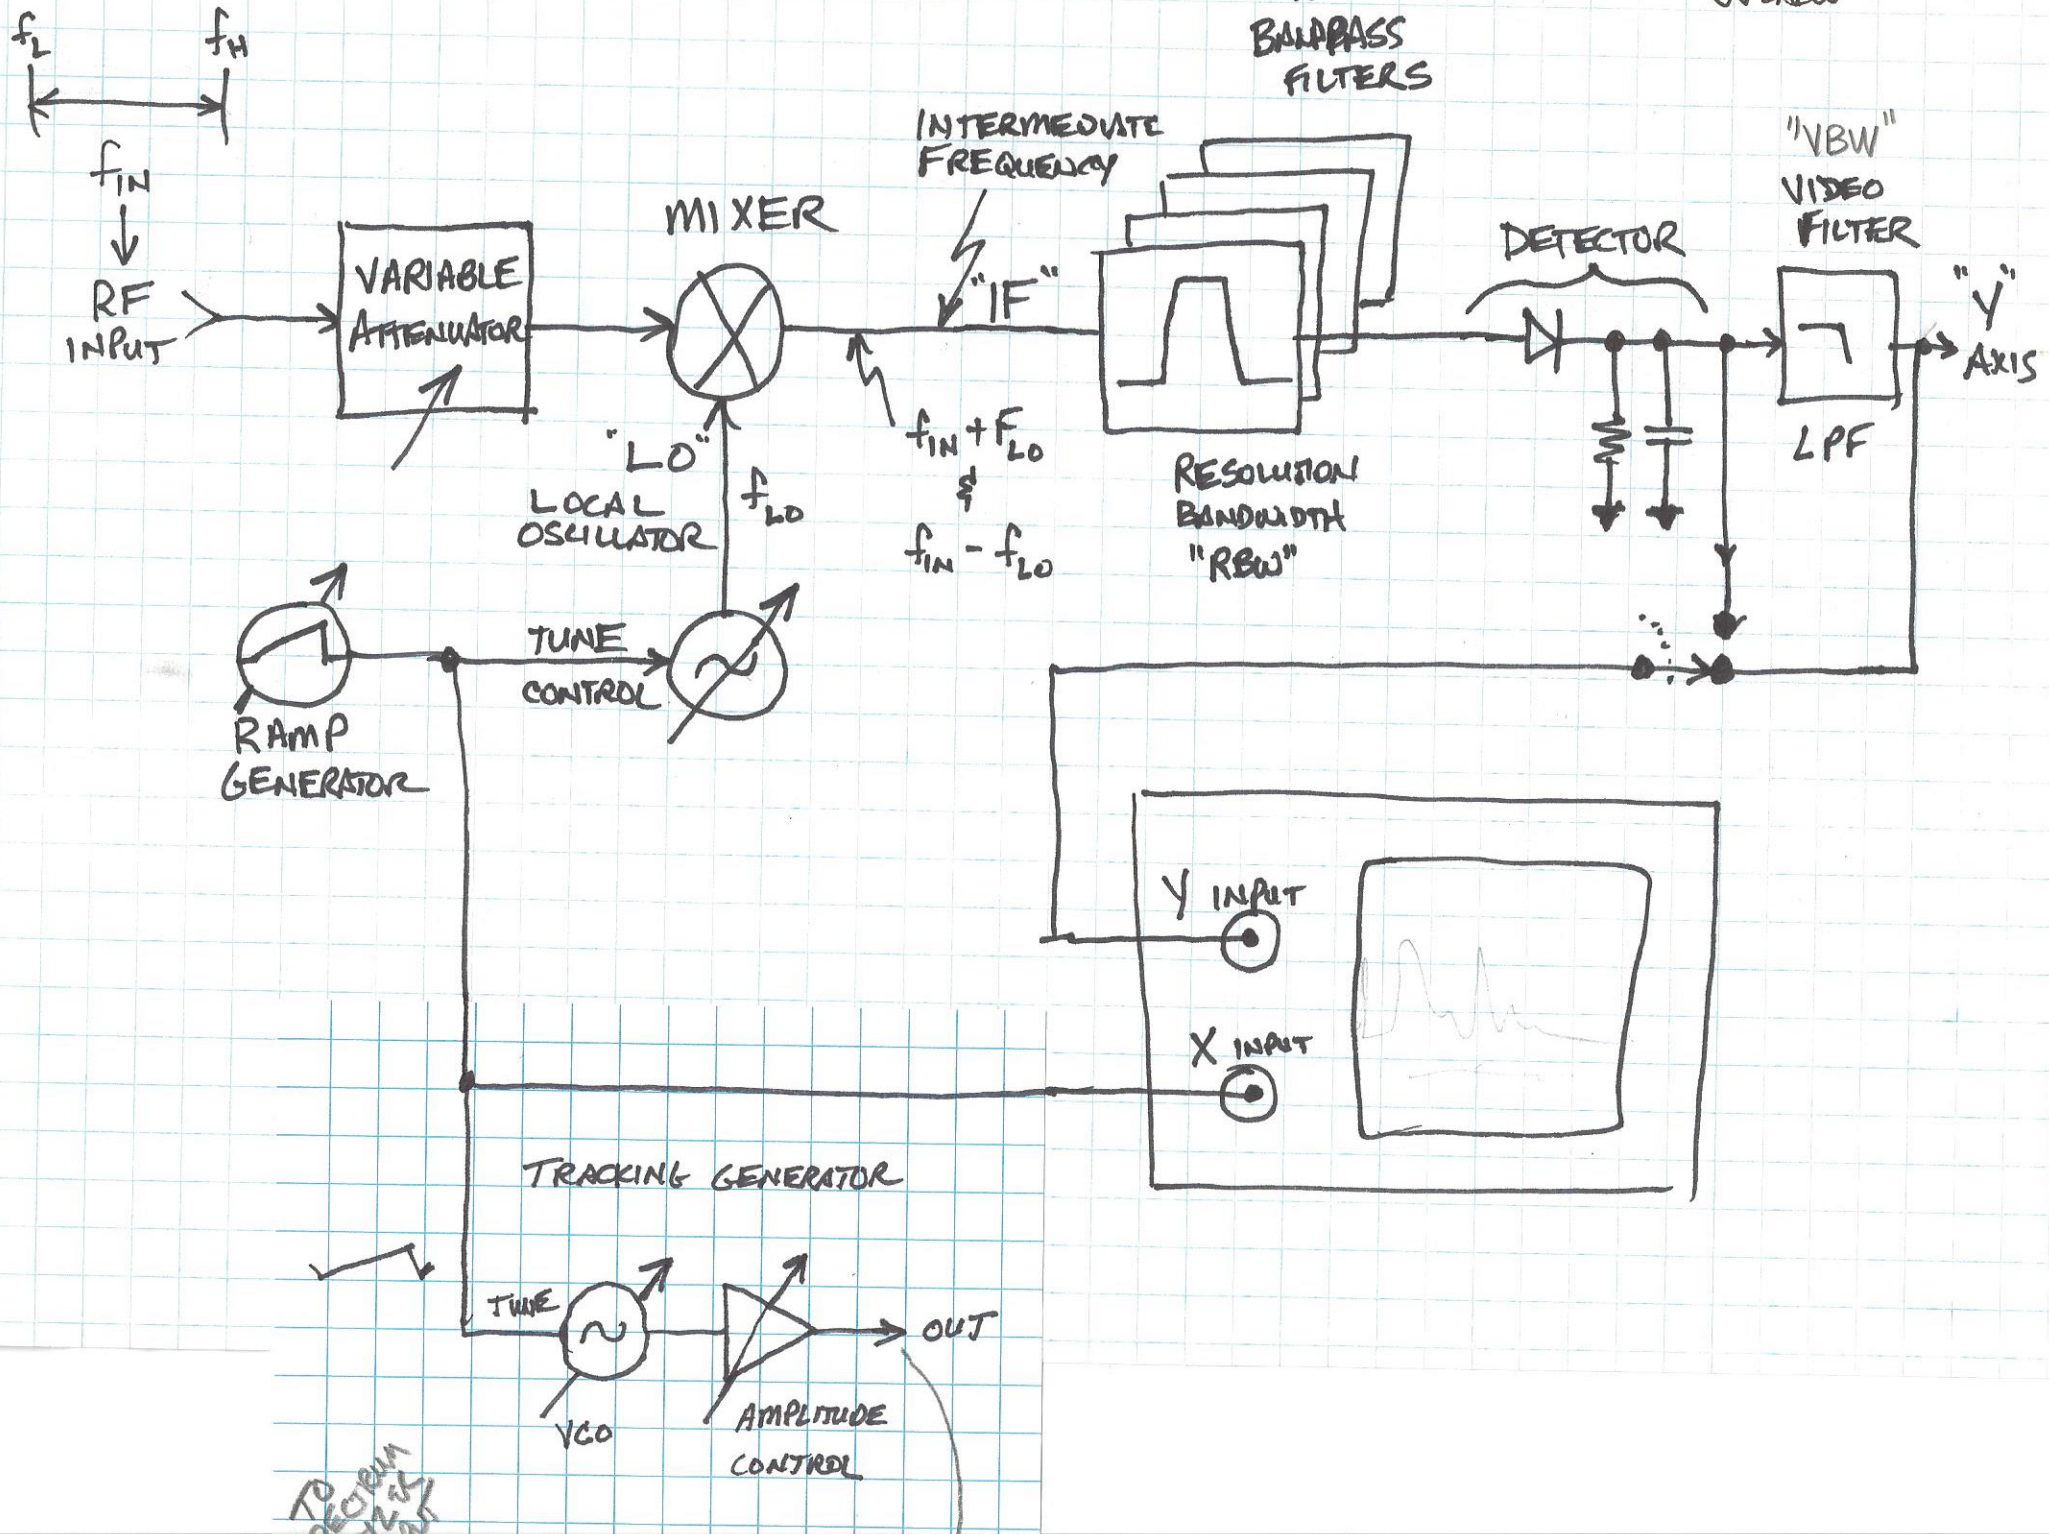 f_L
f_H
f_IN
RF
INPUT
VARIABLE
ATTENUATOR
MIXER
INTERMEDIATE
FREQUENCY
"IF"
BANDPASS
FILTERS
DETECTOR
"VBW"
VIDEO
FILTER
"Y"
AXIS
LPF
"LO"
LOCAL
OSCILLATOR
f_LO
f_IN + F_LO
&
f_IN - f_LO
RESOLUTION
BANDWIDTH
"RBW"
TUNE
CONTROL
RAMP
GENERATOR
Y INPUT
X INPUT
TRACKING GENERATOR
TUNE
OUT
VCO
AMPLITUDE
CONTROL
TO